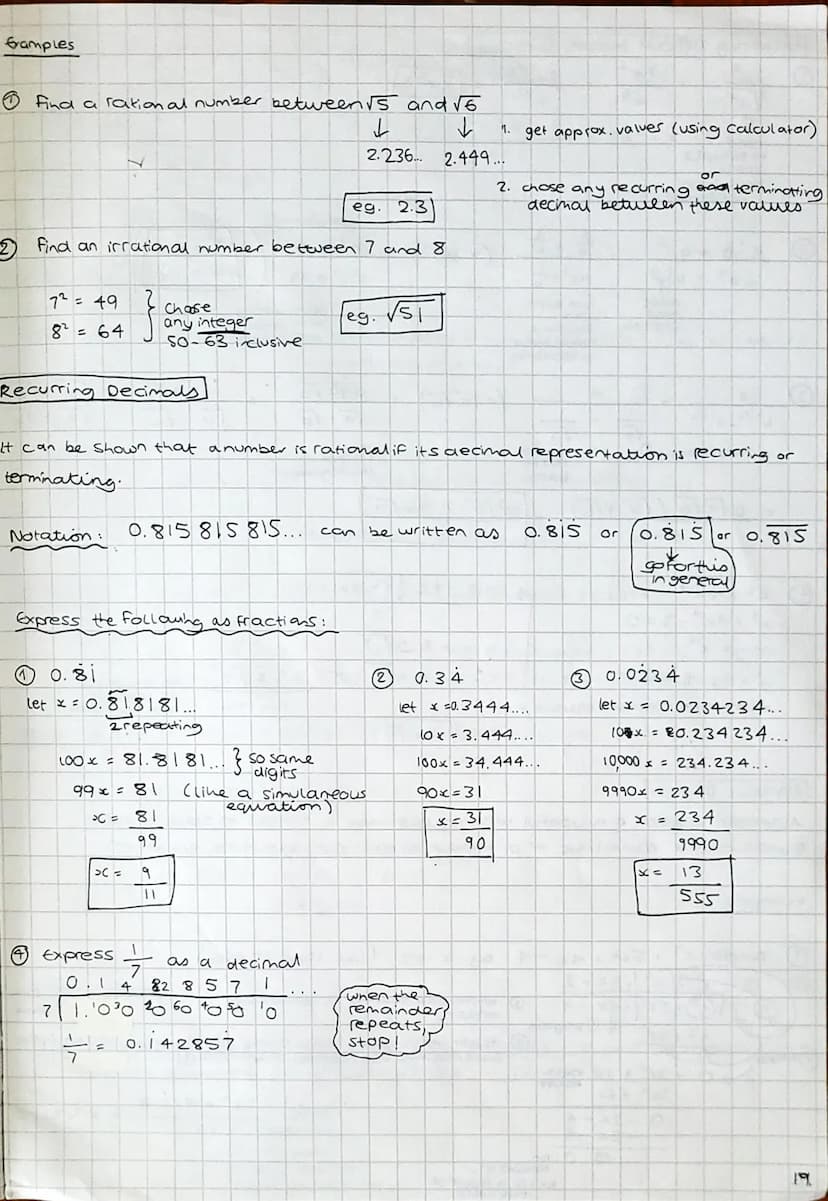 Examples
① Find a rational number between √5 and √6
↓ ↓ 1. get approx. values (using calculator)
2.236... 2.449...
or
2. chose any recurring terminating
decimal between these values
eg. 2.3
② Find an irrational number between 7 and 8
7² = 49
8² = 64
} chose
any integer
50-63 inclusive
eg. √51
Recurring Decimals
It can be shown that a number is rational if its decimal representation is recurring or
terminating.
Notation: 0.815 815 815... can be written as 0.8̇1̇5̇ or 0.8̇15̇ or 0.\overline{815}
↓
go for this
in general
Express the following as fractions:
① 0.8̇1̇
let x = 0.818181...
2 repeating
100x = 81.8181... } so same
digits
99x = 81 (like a simulaneous
equation)
x = 81/99
x = 9/11
② 0.34̇
let x =0.3444....
10x = 3.444....
100x = 34.444...
90x=31
x = 31/90
③ 0.02̇34̇
let x = 0.0234234...
10x = 0.234234...
10,000 x = 234.234...
9990x = 234
x = 234/9990
x = 13/555
④ Express 1/7 as a decimal
0.1 4 2 8 5 7 1 ...
7 | 1.¹0³0 ²0 ⁶0 ⁴0 ⁵0 ¹0
1/7 = 0.1̇42857̇
when the
remainder
repeats,
stop!
19